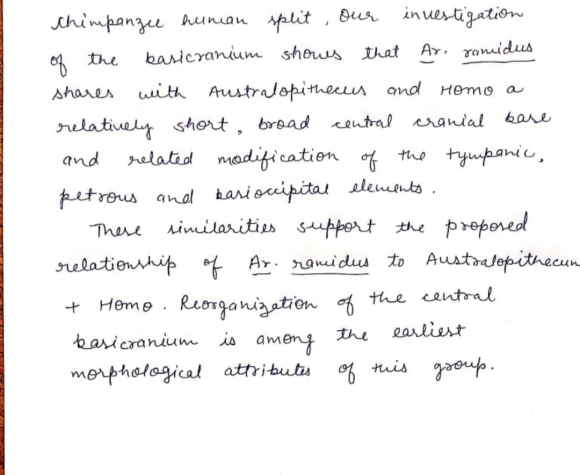 chimpanzee human split, Our investigation
of the basicranium shows that Ar. ramidus
shares with Australopithecus and Homo a
relatively short, broad central cranial base
and related modification of the tympanic,
petrous and basioccipital elements.
These similarities support the proposed
relationship of Ar. ramidus to Australopithecun
+ Homo. Reorganization of the central
basicranium is among the earliest
morphological attributes of this group.